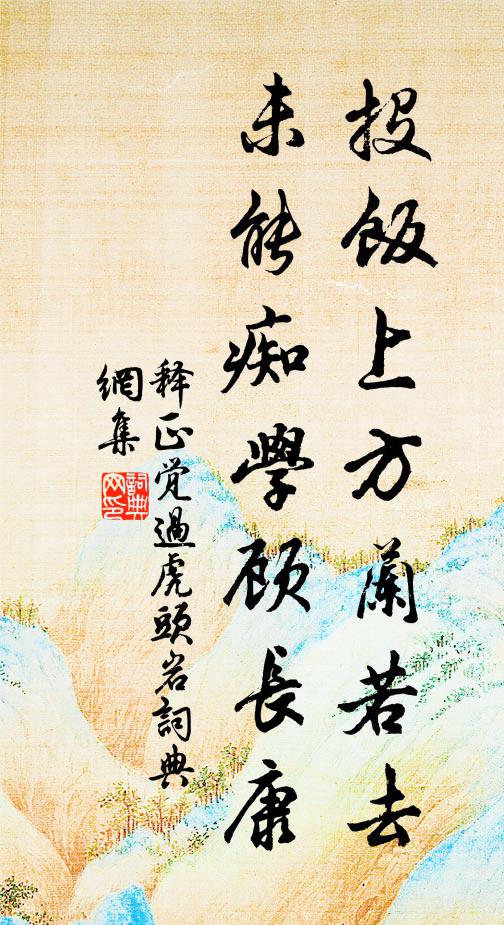 投飯上方蘭若去
未能痴學顾長康
释正觉過虎頭岩詞典
網集
詞典
网印